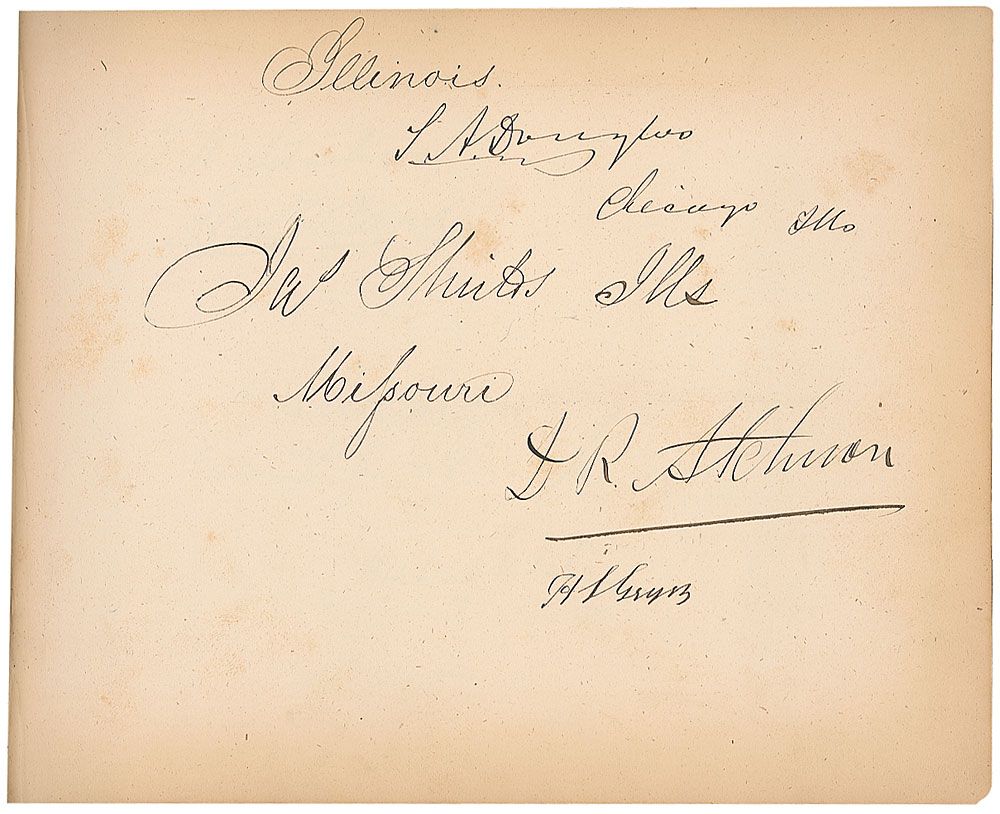 Illinois.
S. A. Douglas
Chicago Ills
Jas Shields Ills
Missouri
D. R. Atchison
H S Geyer